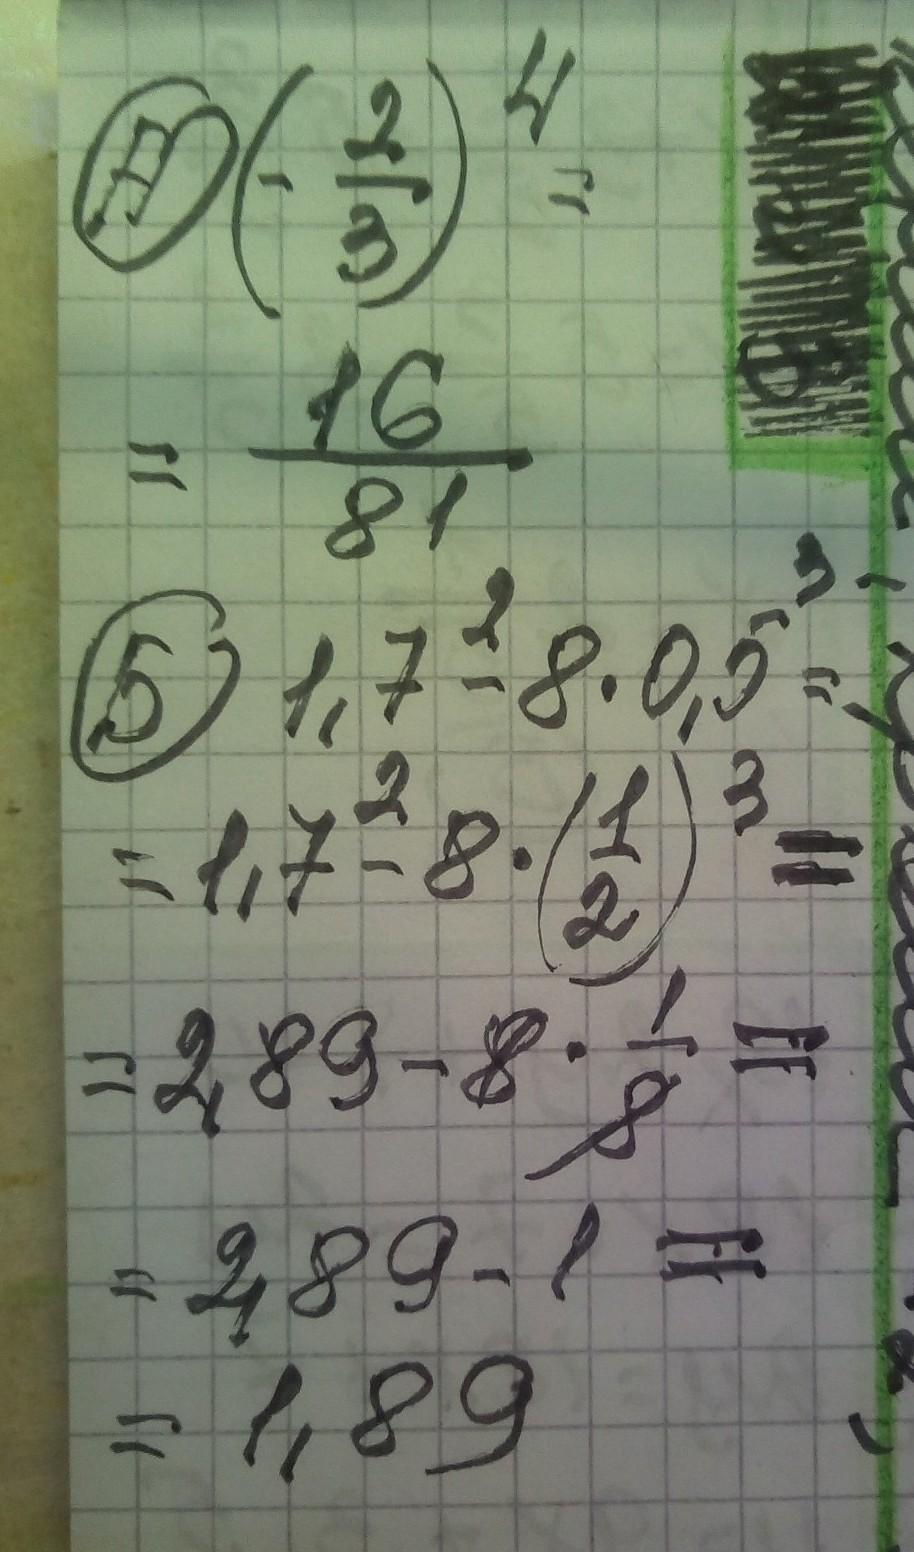 А) (- 2/3)⁴ =
= 16/81
Б) 1,7² - 8 · 0,5³ =
= 1,7² - 8 · (1/2)³ =
= 2,89 - 8 · 1/8 =
= 2,89 - 1 =
= 1,89